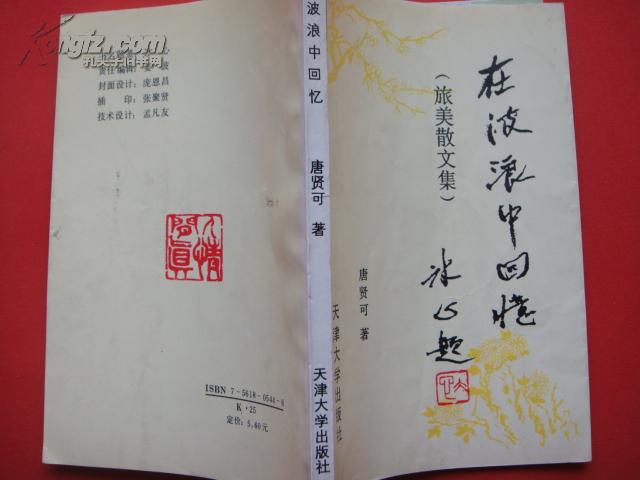 Kongfz.com
孔夫子旧书网
封面设计：庞恩昌
插 印：张聚贤
技术设计：孟凡友
人情
间真
ISBN 7-5618-0544-6
K·25
定价：5.60元
波浪中回忆
唐贤可 著
天津大学出版社
在波浪中回憶
（旅美散文集）
冰心题
唐贤可 著
天津大学出版社